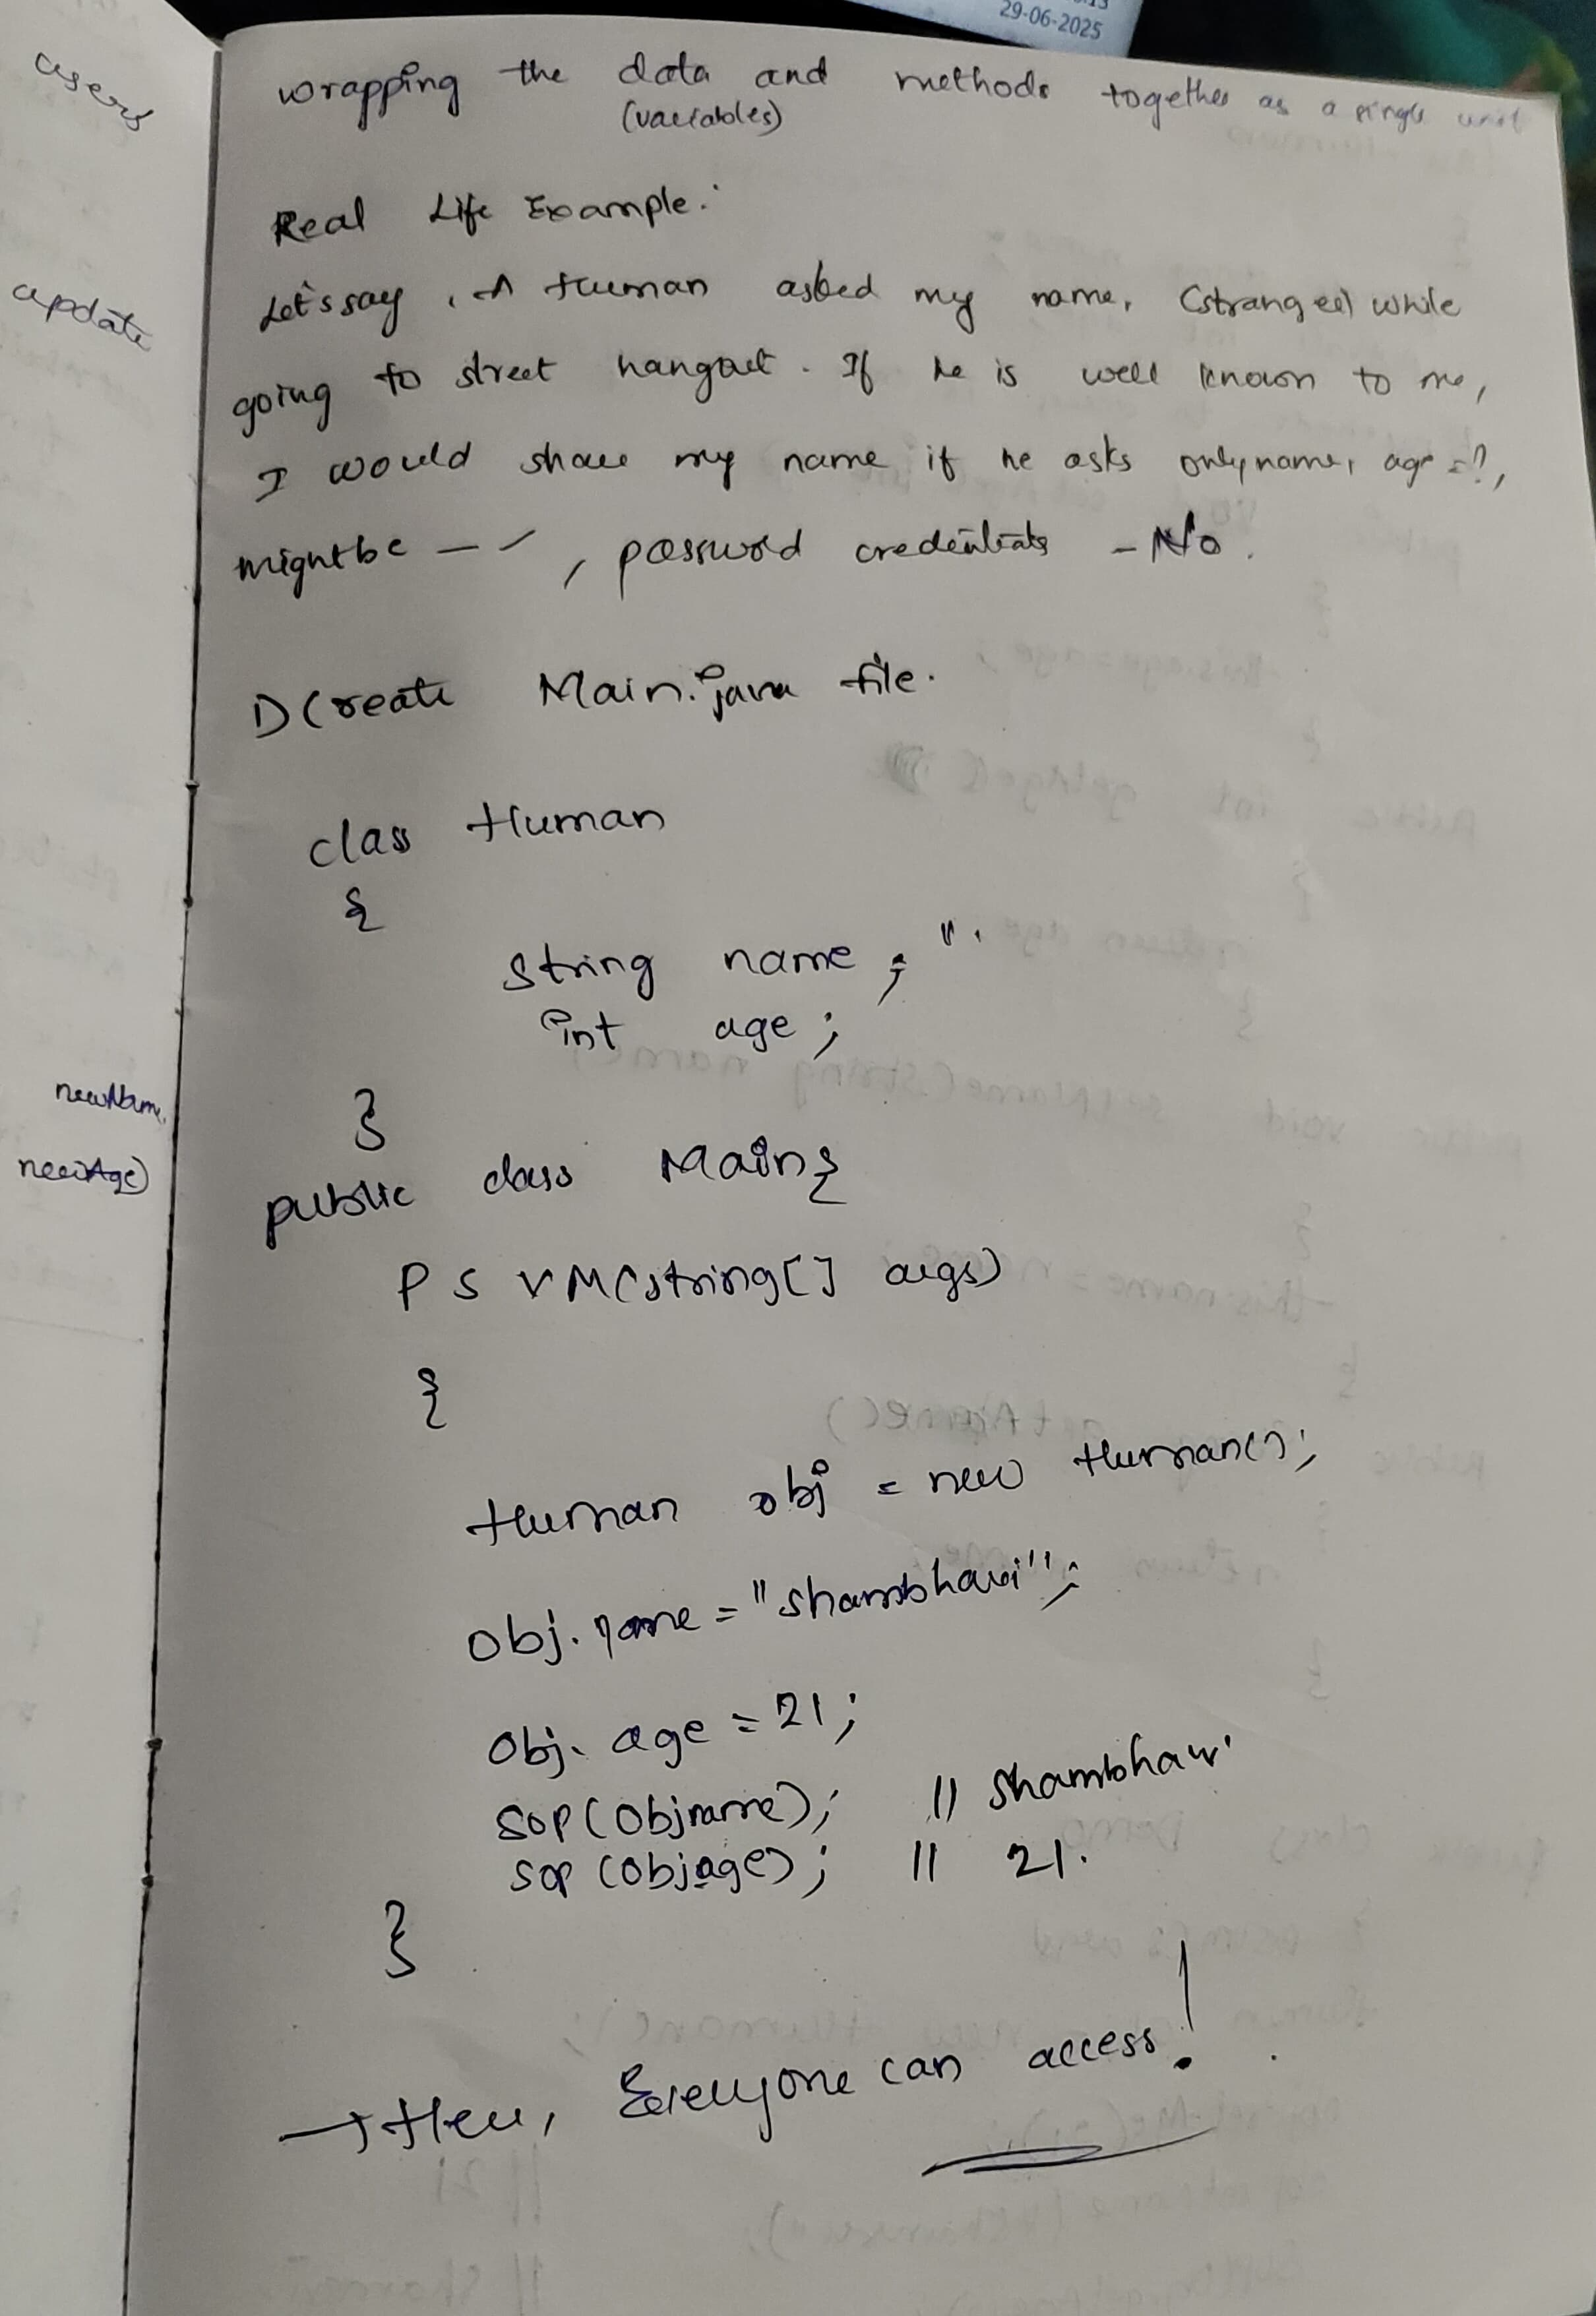 29-06-2025
users
update
newName,
newAge)
wrapping the data and methods together as a single unit
(variables)
Real Life Example:
Let's say, A Human asked my name, (stranger) while
going to street hangout. If he is well known to me,
I would share my name if he asks only name, age =?,
might be - - , password credentials - No.
1) Create Main.java file.
class Human
{
String name ; " .
int age ;
}
public class Main {
P S V M (String[] args)
{
Human obj = new Human();
Obj. name = "shambhavi";
Obj. age = 21;
SOP (Objname); // Shambhavi
SOP (Objage); // 21.
}
→ Here, Everyone can access!